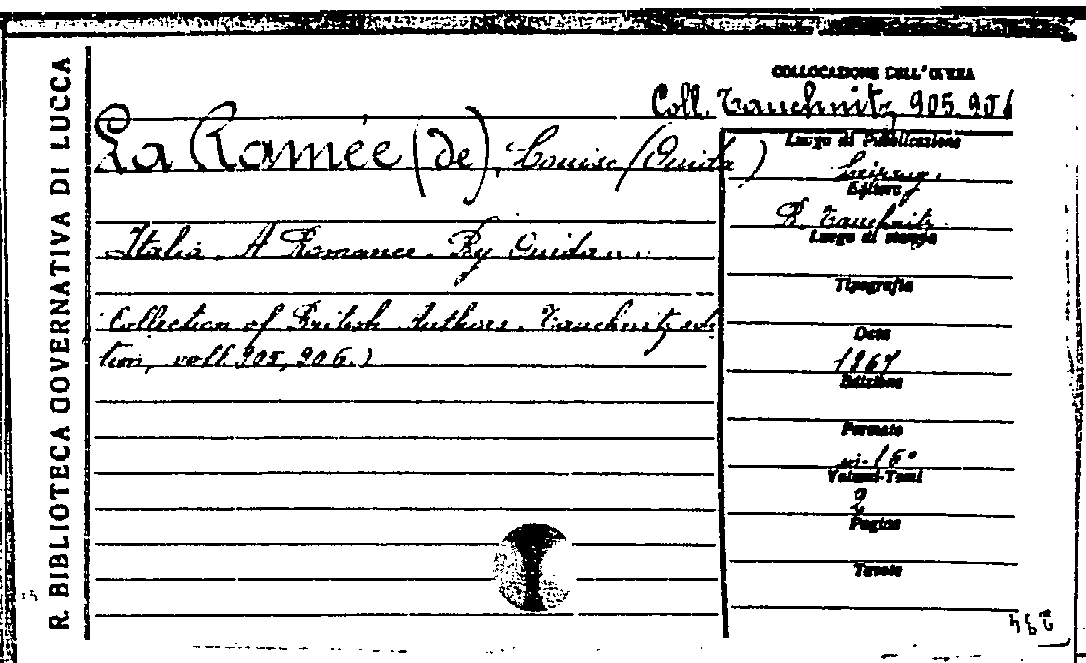 R. BIBLIOTECA GOVERNATIVA DI LUCCA
COLLOCAZIONE DELL'OPERA
Coll. Tauchnitz, 905.906
La Ramée (de), Louise (Ouida)
Italia. A Romance. By Ouida...
Collection of British Authors. Tauchnitz edi-
tion, voll. 905, 906.)
Luogo di Pubblicazione
Leipzig.
Editore
B. Tauchnitz
Luogo di stampa
Tipografia
Data
1867
Edizione
Formato
in-16°
Volumi-Tomi
2
Pagine
Tavole